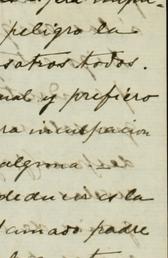 peligro la
sotros todos.
nal y prefiero
ra inculpacion
alguna. —
deducirla
amado padre